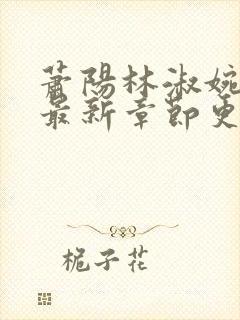 萧陽林淑婉
最新章節更
栀子花